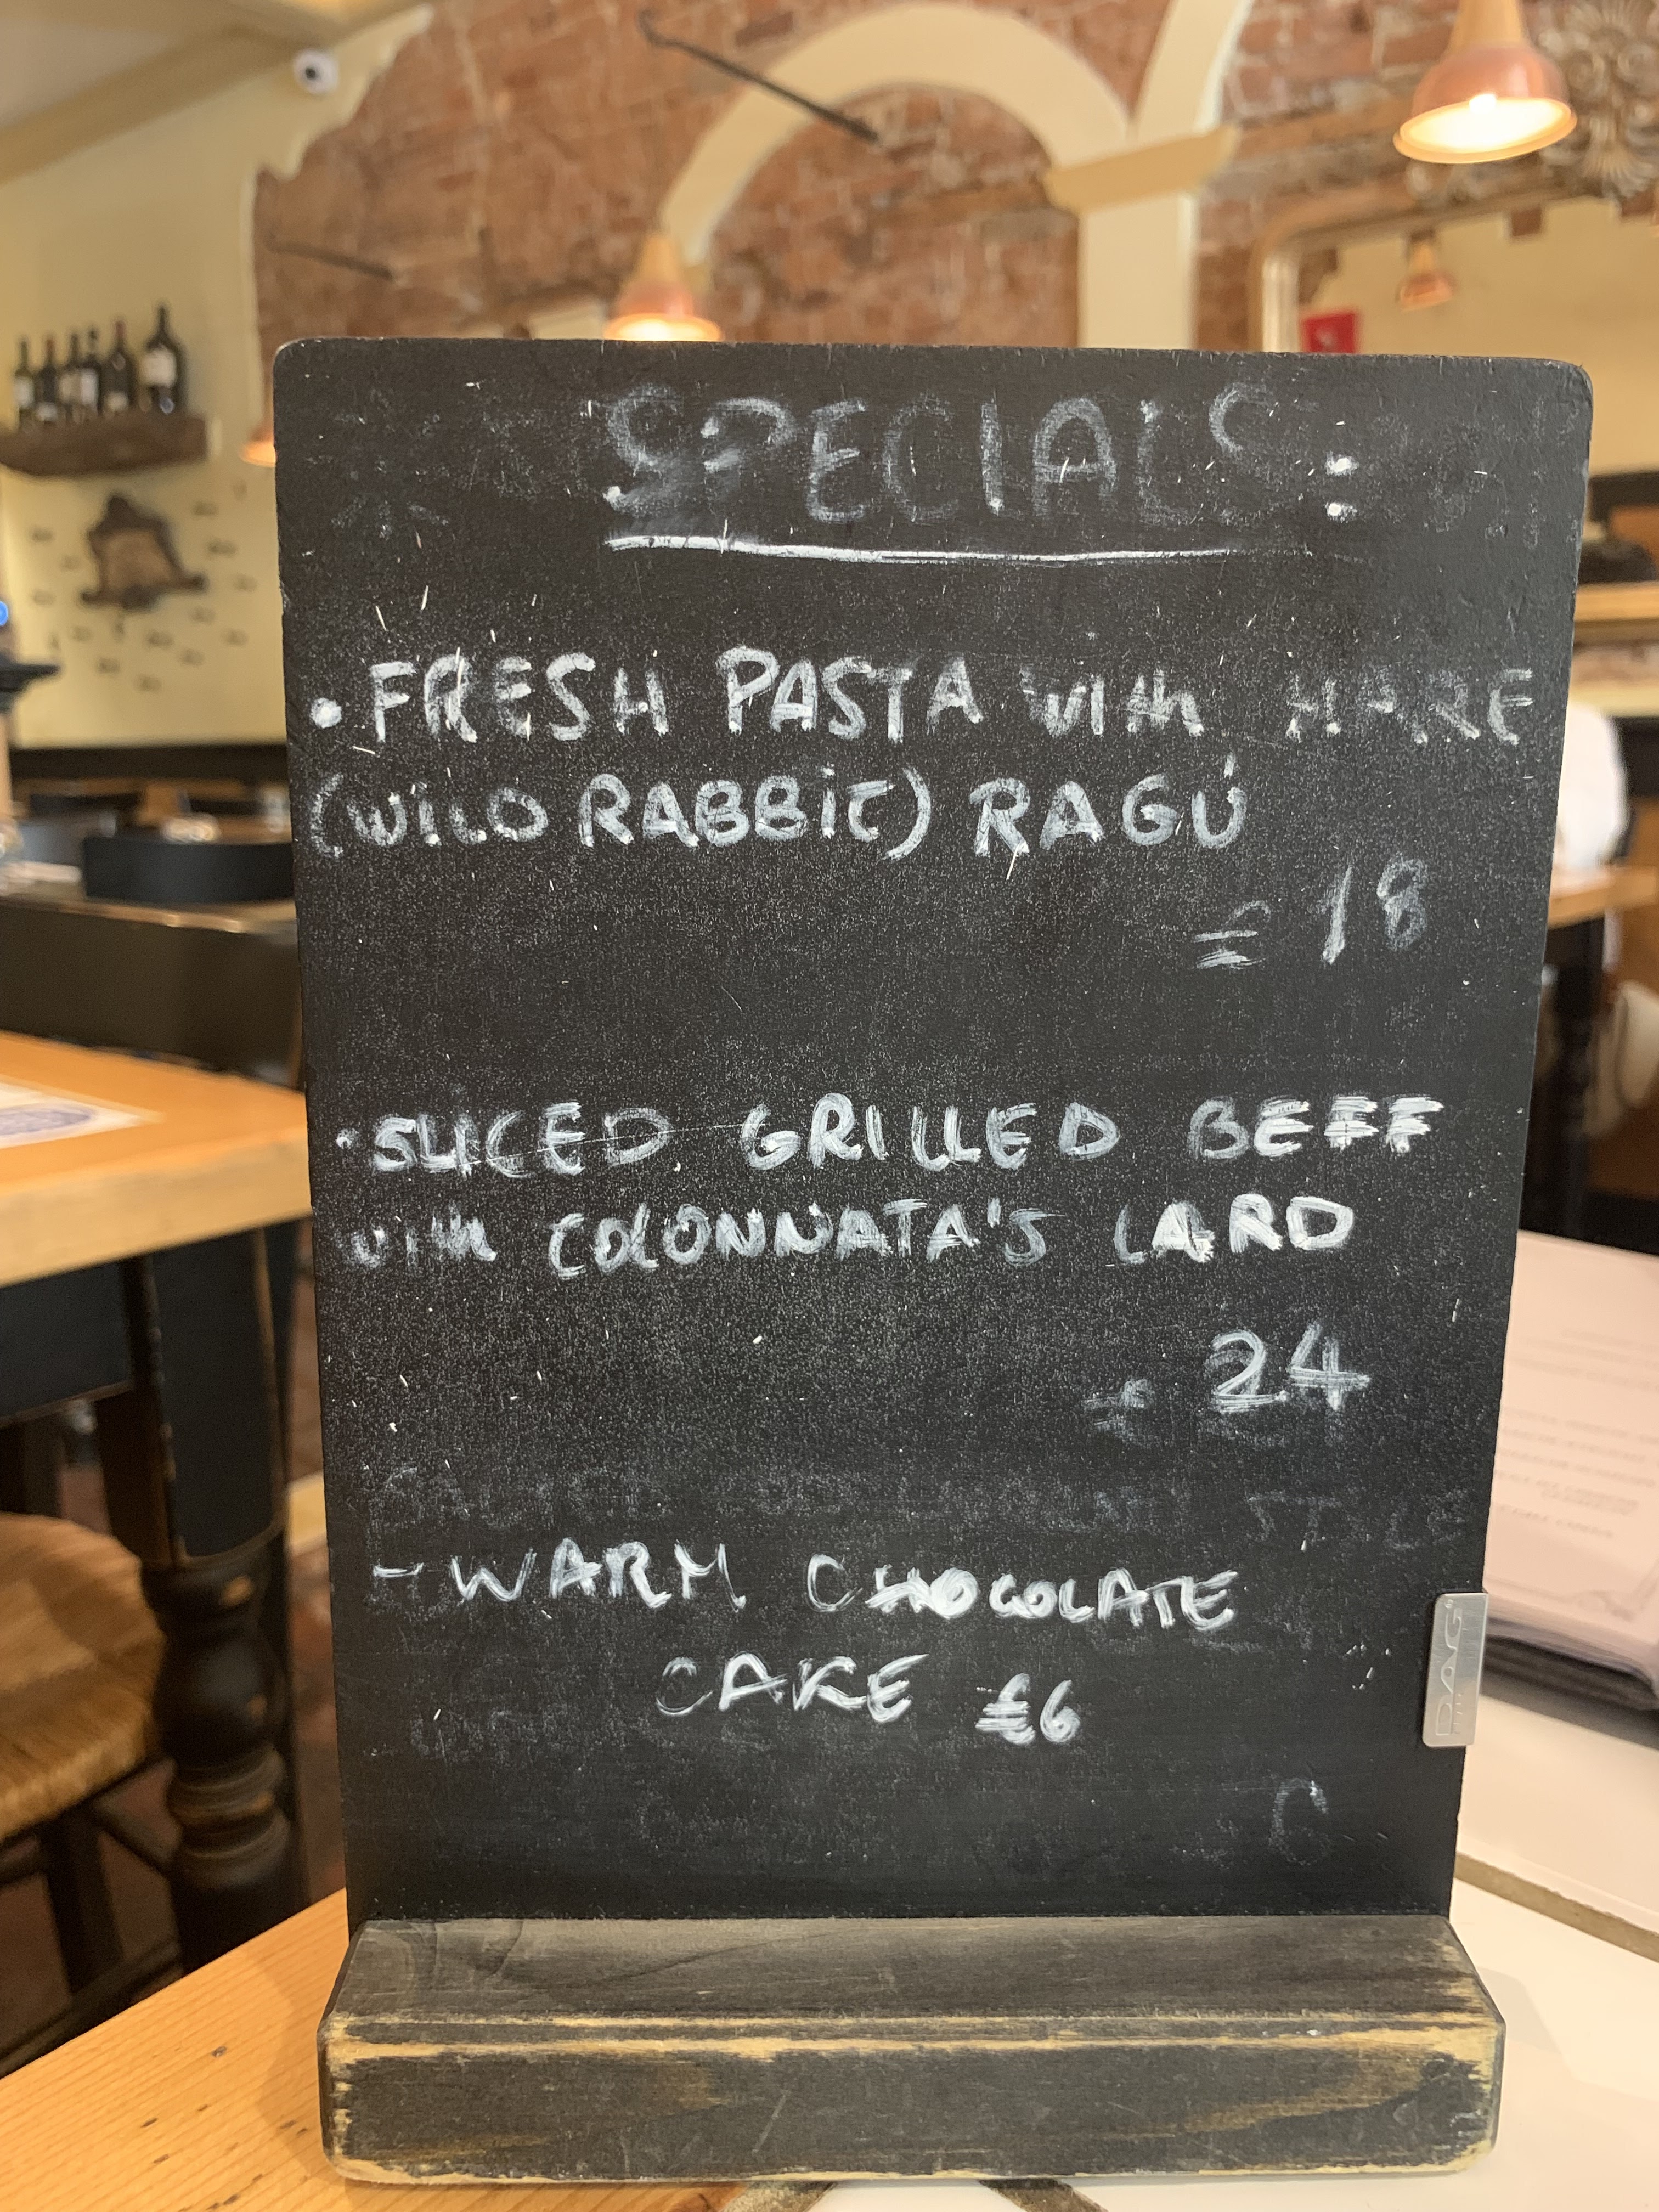 SPECIALS:
• FRESH PASTA with HARE
(WILD RABBIT) RAGÚ
£ 18
• SLICED GRILLED BEEF
with COLONNATA'S LARD
£ 24
- WARM CHOCOLATE
CAKE £6
DAG